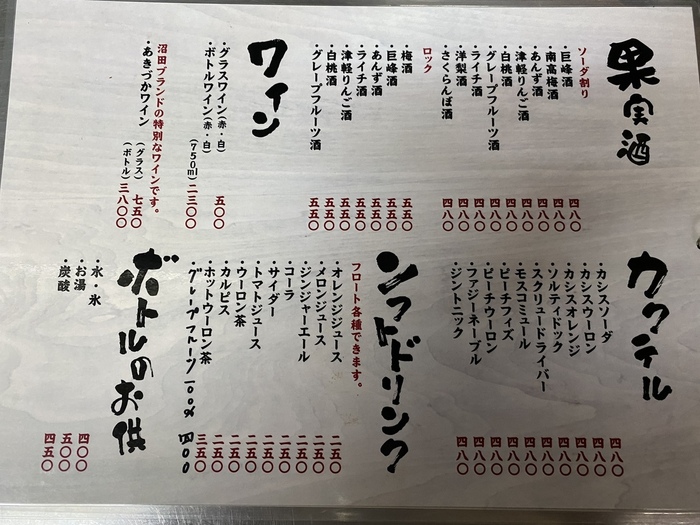 果実酒
ソーダ割り
・巨峰酒 四八〇
・南高梅酒 四八〇
・あんず酒 四八〇
・津軽りんご酒 四八〇
・白桃酒 四八〇
・グレープフルーツ酒 四八〇
・ライチ酒 四八〇
・洋梨酒 四八〇
・さくらんぼ酒 四八〇
ロック
・梅酒 五五〇
・巨峰酒 五五〇
・あんず酒 五五〇
・ライチ酒 五五〇
・津軽りんご酒 五五〇
・白桃酒 五五〇
・グレープフルーツ酒 五五〇
ワイン
・グラスワイン(赤・白) 五〇〇
・ボトルワイン(赤・白) (750ml) 二三〇〇
沼田ブランドの特別なワインです。
・あきづかワイン (グラス) 七五〇
(ボトル) 三八〇〇
カクテル
・カシスソーダ 四八〇
・カシスウーロン 四八〇
・カシスオレンジ 四八〇
・ソルティドック 四八〇
・スクリュードライバー 四八〇
・モスコミュール 四八〇
・ピーチフィズ 四八〇
・ピーチウーロン 四八〇
・ファジーネーブル 四八〇
・ジントニック 四八〇
ソフトドリンク
フロート各種できます。
・オレンジジュース 二五〇
・メロンジュース 二五〇
・ジンジャーエール 二五〇
・コーラ 二五〇
・サイダー 二五〇
・トマトジュース 二五〇
・ウーロン茶 二五〇
・カルピス 二五〇
・ホットウーロン茶 三五〇
・グレープフルーツ一〇〇% 四〇〇
ボトルのお供
・水・氷 四〇〇
・お湯 五〇〇
・炭酸 四五〇